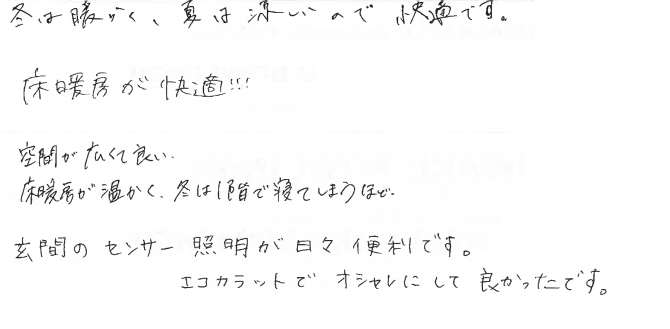 冬は暖かく、夏は涼しいので快適です。
床暖房が快適!!!
空間が広くて良い.
床暖房が温かく、冬は1階で寝てしまうほど.
玄関のセンサー照明が日々便利です。
エコカラットでオシャレにして良かったです。